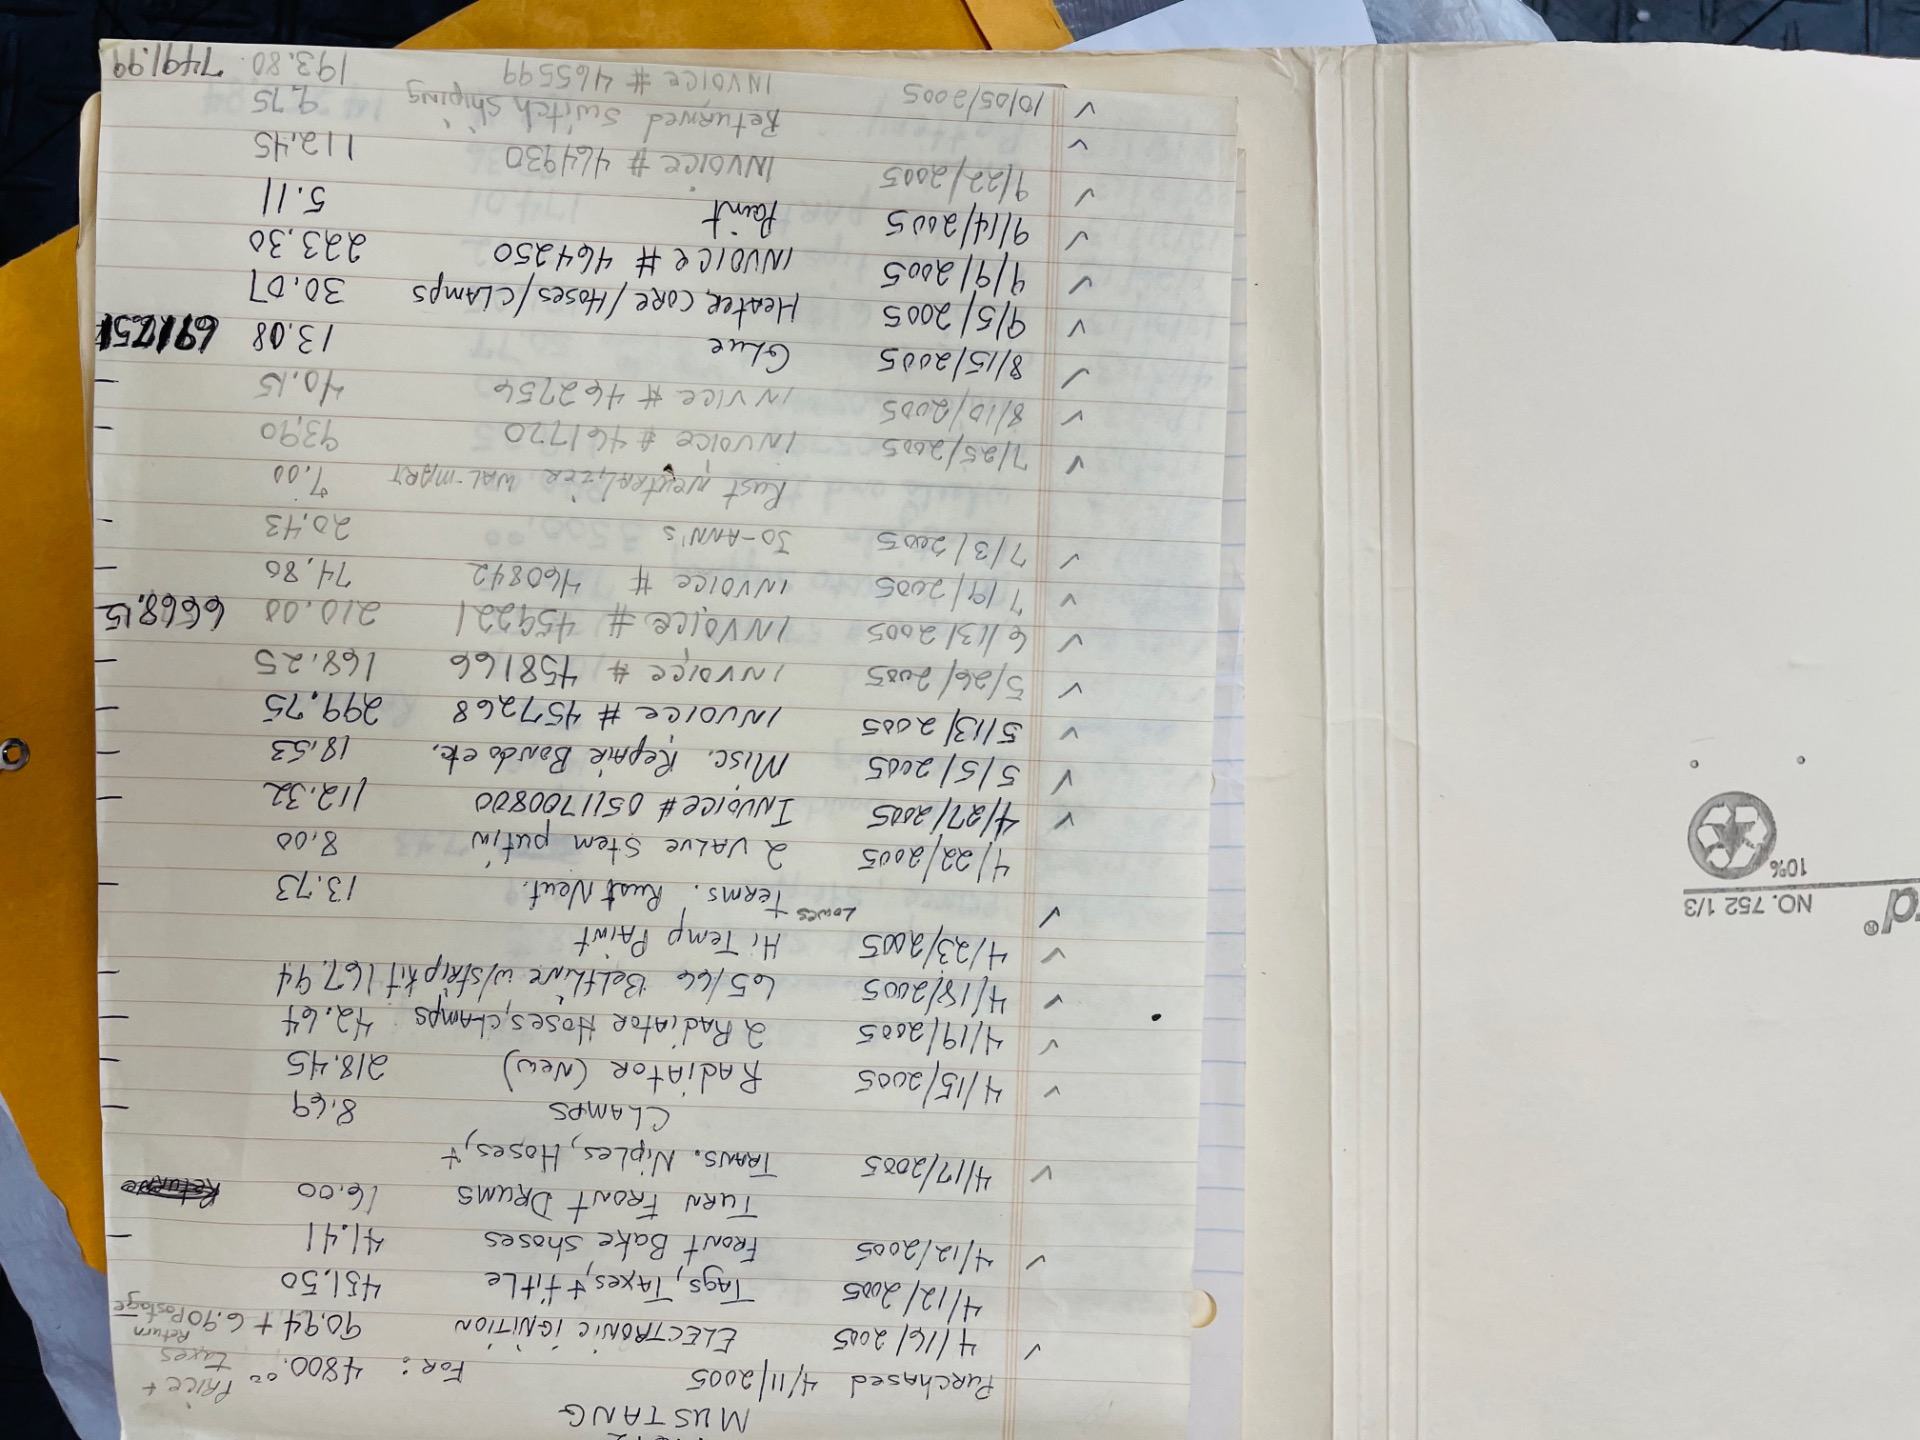 MUSTANG
Purchased 4/11/2005 For: 4800.00 Price + taxes
✓ 4/16/2005 Electronic ignition 90.94 + 6.90 Return Postage
4/12/2005 Tags, Taxes, + title 431.50
✓ 4/12/2005 Front Bake shoses 41.41 –
Turn Front Drums 16.00
✓ 4/17/2005 Trans. Niples, Hoses, +
Clamps 8.69 –
✓ 4/15/2005 Radiator (New) 218.45 –
✓ 4/19/2005 2 Radiator Hoses, clamps 42.64 –
✓ 4/18/2005 65/66 Beltline w/strip kit 167.94 –
✓ 4/23/2005 Hi Temp Paint
✓ Lowes + Terms. Rust Neut. 13.73 –
4/22/2005 2 Valve Stem put in 8.00
✓ 4/27/2005 Invoice # 0511700800 112.32 –
✓ 5/5/2005 Misc. Repair Bondo etc. 18.53 –
✓ 5/13/2005 Invoice # 457268 299.75 –
✓ 5/26/2005 Invoice # 458166 168.25 –
✓ 6/13/2005 Invoice # 459221 210.00 6668.15
✓ 7/9/2005 Invoice # 460842 74.80 –
✓ 7/3/2005 Jo-Ann's 20.43 –
Rust neutralizer Wal-mart 7.00
✓ 7/25/2005 Invoice # 461770 93.90 –
✓ 8/10/2005 Invice # 462756 40.15 –
✓ 8/15/2005 Glue 13.08
✓ 9/5/2005 Heater core/Hoses/Clamps 30.07
✓ 9/9/2005 Invoice # 464250 223.30
✓ 9/14/2005 Paint 5.11
✓ 9/22/2005 Invoice # 464930 112.45
✓ Returned switch shiping 9.75
✓ 10/05/2005 Invoice # 465599 193.80 7491.99
NO. 752 1/3
10%